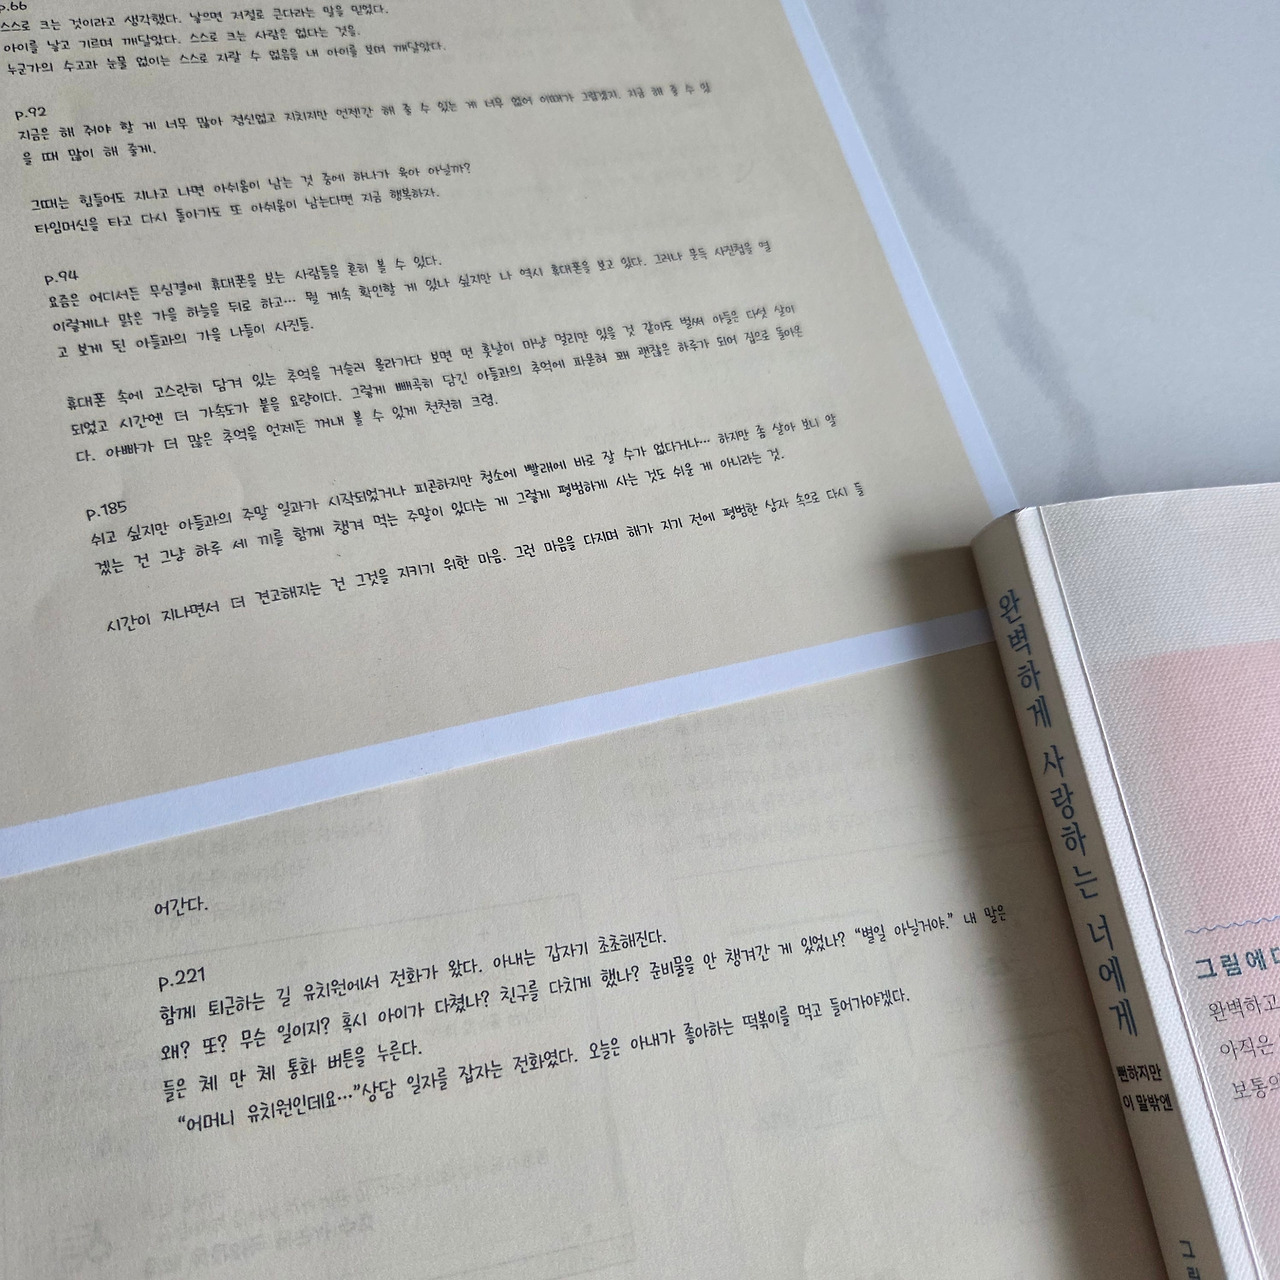 p.66
스스로 크는 것이라고 생각했다. 낳으면 저절로 큰다라는 말을 믿었다.
아이를 낳고 기르며 깨달았다. 스스로 크는 사람은 없다는 것을.
누군가의 수고과 눈물 없이는 스스로 자랄 수 없음을 내 아이를 보며 깨달았다.
p.92
지금은 해 줘야 할 게 너무 많아 정신없고 지치지만 언젠간 해 줄 수 있는 게 너무 없어 이때가 그립겠지. 지금 해 줄 수 있
을 때 많이 해 줄게.
그때는 힘들어도 지나고 나면 아쉬움이 남는 것 중에 하나가 육아 아닐까?
타임머신을 타고 다시 돌아가도 또 아쉬움이 남는다면 지금 행복하자.
p.94
요즘은 어디서든 무심결에 휴대폰을 보는 사람들을 흔히 볼 수 있다.
이렇게나 맑은 가을 하늘을 뒤로 하고… 뭘 계속 확인할 게 있나 싶지만 나 역시 휴대폰을 보고 있다. 그러나 문득 사진첩을 열
고 보게 된 아들과의 가을 나들이 사진들.
휴대폰 속에 고스란히 담겨 있는 추억을 거슬러 올라가다 보면 먼 훗날이 마냥 멀리만 있을 것 같아도 벌써 아들은 다섯 살이
되었고 시간엔 더 가속도가 붙을 요량이다. 그렇게 빼곡히 담긴 아들과의 추억에 파묻혀 꽤 괜찮은 하루가 되어 집으로 돌아온
다. 아빠가 더 많은 추억을 언제든 꺼내 볼 수 있게 천천히 크렴.
p.185
쉬고 싶지만 아들과의 주말 일과가 시작되었거나 피곤하지만 청소에 빨래에 바로 잘 수가 없다거나… 하지만 좀 살아 보니 알
겠는 건 그냥 하루 세 끼를 함께 챙겨 먹는 주말이 있다는 게 그렇게 평범하게 사는 것도 쉬운 게 아니라는 것.
시간이 지나면서 더 견고해지는 건 그것을 지키기 위한 마음. 그런 마음을 다지며 해가 지기 전에 평범한 상자 속으로 다시 들
어간다.
p.221
함께 퇴근하는 길 유치원에서 전화가 왔다. 아내는 갑자기 초초해진다.
왜? 또? 무슨 일이지? 혹시 아이가 다쳤나? 친구를 다치게 했나? 준비물을 안 챙겨간 게 있었나? “별일 아닐거야.” 내 말은
들은 체 만 체 통화 버튼을 누른다.
“어머니 유치원인데요…”상담 일자를 잡자는 전화였다. 오늘은 아내가 좋아하는 떡볶이를 먹고 들어가야겠다.
완벽하게 사랑하는 너에게
뻔하지만
이 말밖엔
그림에
완벽하고
아직은
보통의